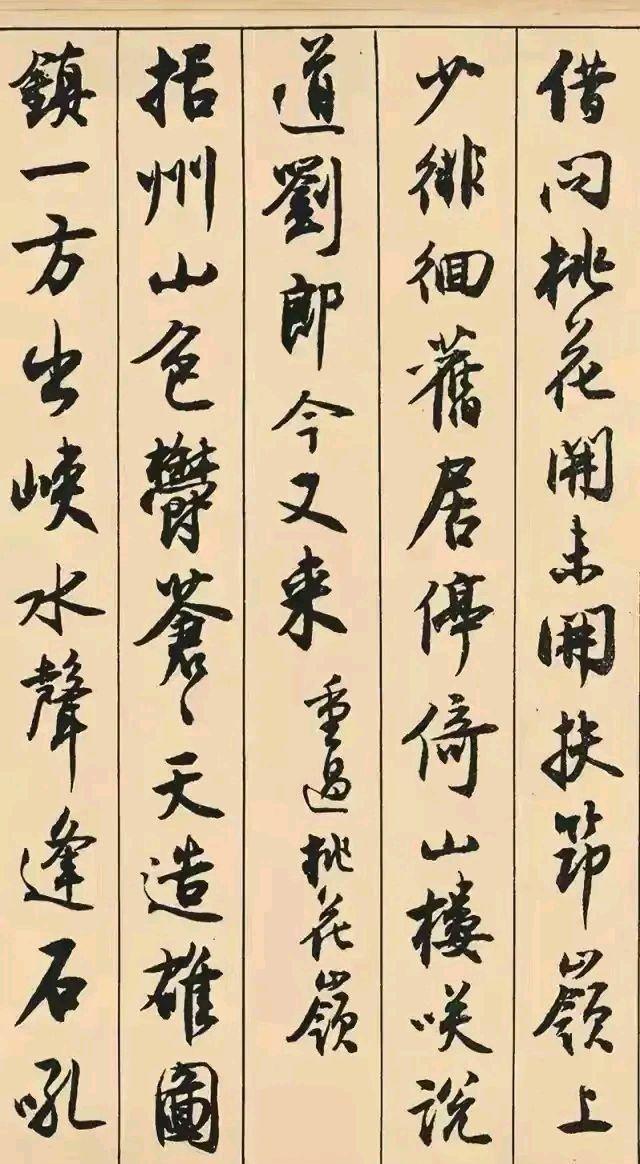 借問桃花開未開扶筇嶺上
少徘徊舊居停倚山樓咲說
道劉郎今又来 重過桃花嶺
括州山色鬱蒼〻天造雄圖
鎮一方出峽水聲逢石吼